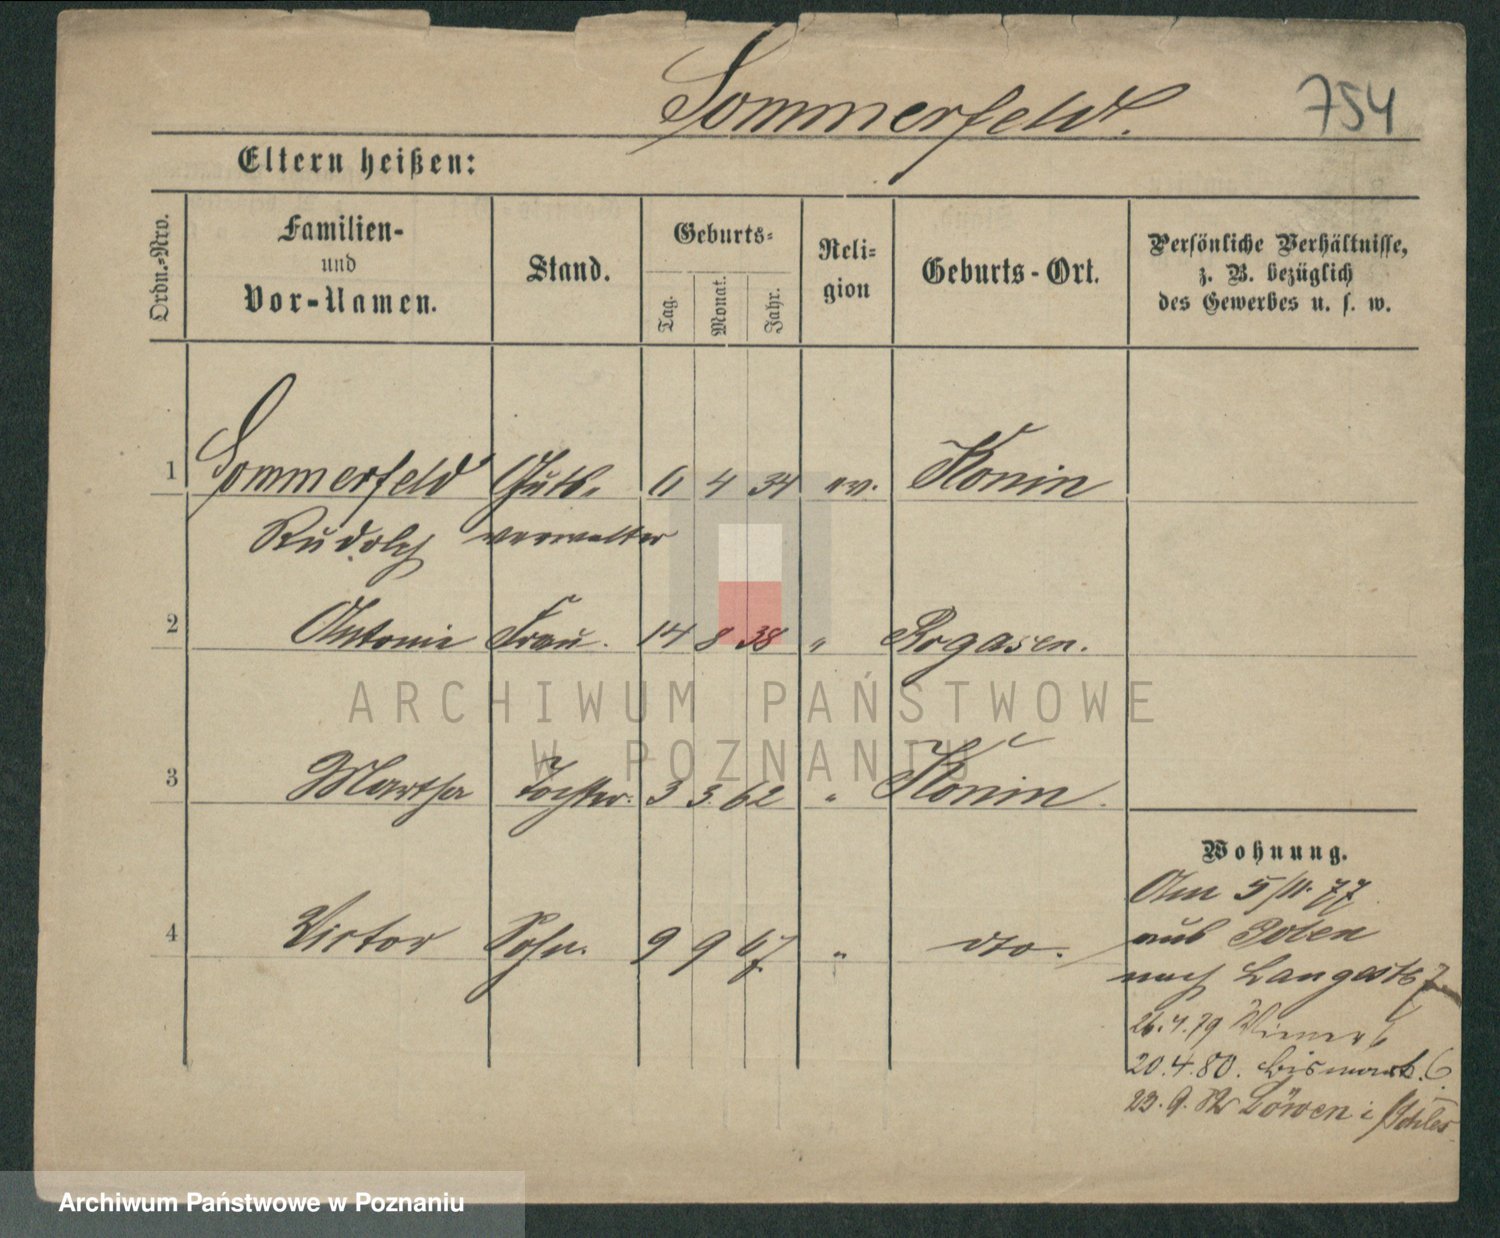 Sommerfeld.
754
Eltern heißen:
Ordn.=Nro.
Familien-
und
Vor-Namen.
Stand.
Geburts=
Tag.
Monat.
Jahr.
Reli=
gion
Geburts-Ort.
Persönliche Verhältnisse,
z. B. bezüglich
des Gewerbes u. s. w.
1 Sommerfeld Guts- 4 34 ev. Konin
Rudolph verwalter
2 Antonie Frau. 14 8 38 " Rogasen.
ARCHIWUM PAŃSTWOWE
W POZNANIU
3 Martha Tochter. 3 3 62 " Konin.
4 Victor Sohn. 9 9 67 " dto.
Wohnung.
Am 5/11. 77
aus Polen
nach Langestr 7
26.4.79 Wiener 6
20.4.80. Bismarck. 6.
23.9. Löwen i/Schles
Archiwum Państwowe w Poznaniu